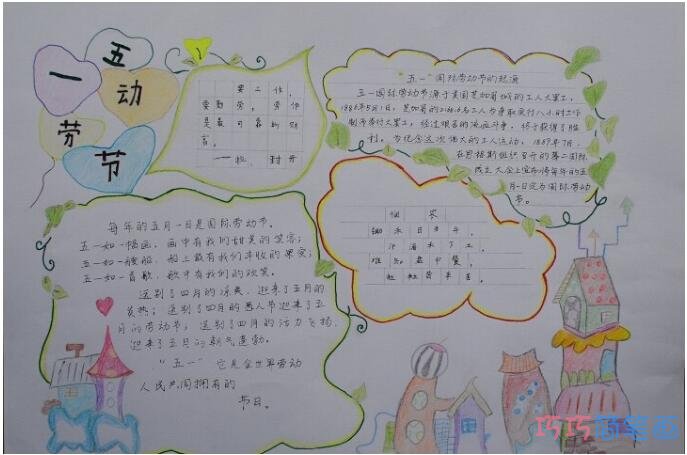 五一
动
劳
节
要工作，
要勤劳。劳作
是最可靠的财
富。
——拉·封丹
“五一”国际劳动节的起源
五一国际劳动节源于美国芝加哥城的工人大罢工，
1886年5月1日，芝加哥的
工人为争取实行八小时工作
制而举行大罢工，经过艰苦的流血斗争，终于获得了胜
利。为纪念这次伟大的工人运动，1889年7月，
在恩格斯组织召开的第二国际
成立大会上宣布将每年的五
月一日定为国际劳动
节。
悯农
锄禾日当午，
汗滴禾下土。
谁知盘中餐，
粒粒皆辛苦。
每年的五月一日是国际劳动节。
五一如一幅画，画中有我们的甜美的笑容；
五一如一艘船，船上载有我们丰收的果实；
五一如一首歌，歌中有我们的欢笑。
送别了四月的凉爽，迎来了五月的
炎热；送别了四月的愚人节迎来了五
月的劳动节；送别了四月的活力飞扬，
迎来了五月的朝气蓬勃。
“五一”它是全世界劳动
人民共同拥有的
节日。
巧巧简笔画